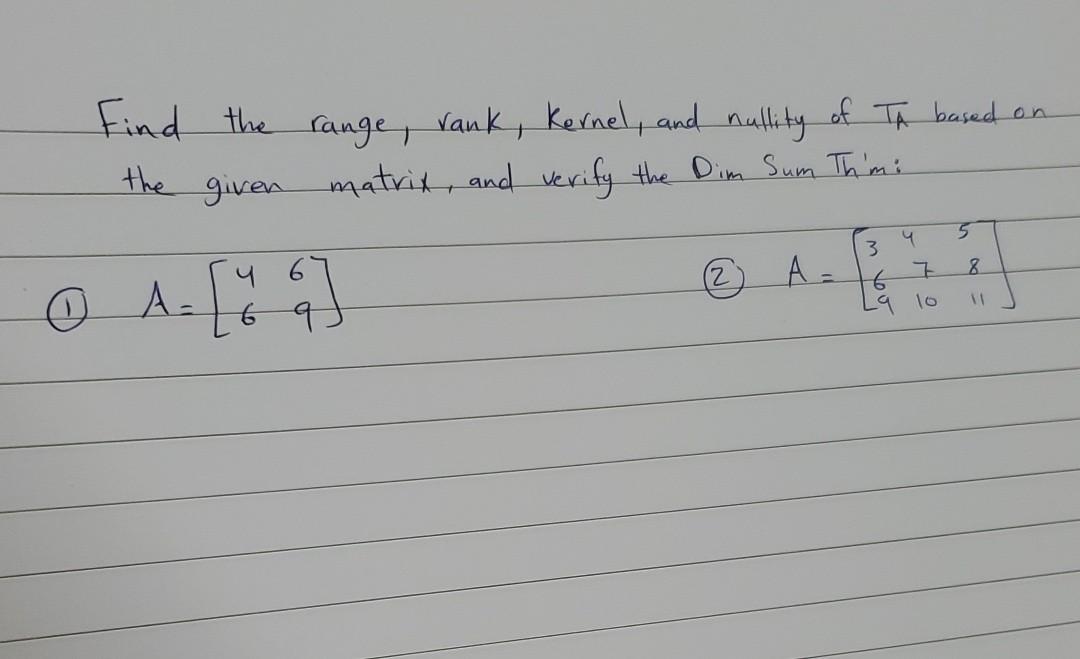 Find the range, rank, kernel, and nullity of TA based on
the given matrix, and verify the Dim Sum Th'm:
① A = [4 6
6 9]
② A = [3 4 5
6 7 8
9 10 11]